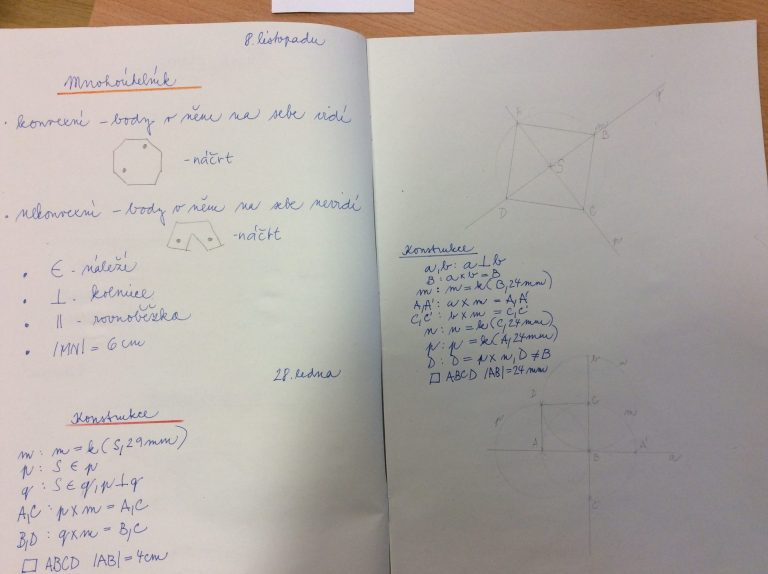 8. listopadu
Mnohoúhelník
• konvexní - body v něm na sebe vidí
- náčrt
• nekonvexní - body v něm na sebe nevidí
- náčrt
• ∈ - náleží
• ⊥ - kolmice
• || - rovnoběžka
• |MN| = 6 cm
28. ledna
Konstrukce
m: m = k(S, 29mm)
p: S ∈ p
q: S ∈ q, p⊥q
A,C: p×m = A,C
B,D: q×m = B,C
□ ABCD |AB| = 4cm
q
B
S
D
C
p
Konstrukce
a,b: a⊥b
B: a×b = B
m: m = k(B, 24mm)
A,A': a×m = A,A'
C,C': b×m = C,C'
n: n = k(C, 24mm)
p: p = k(A, 24mm)
D: D = p×n, D≠B
□ ABCD |AB| = 24mm
D
C
m
p
A
B
A'
a
C'